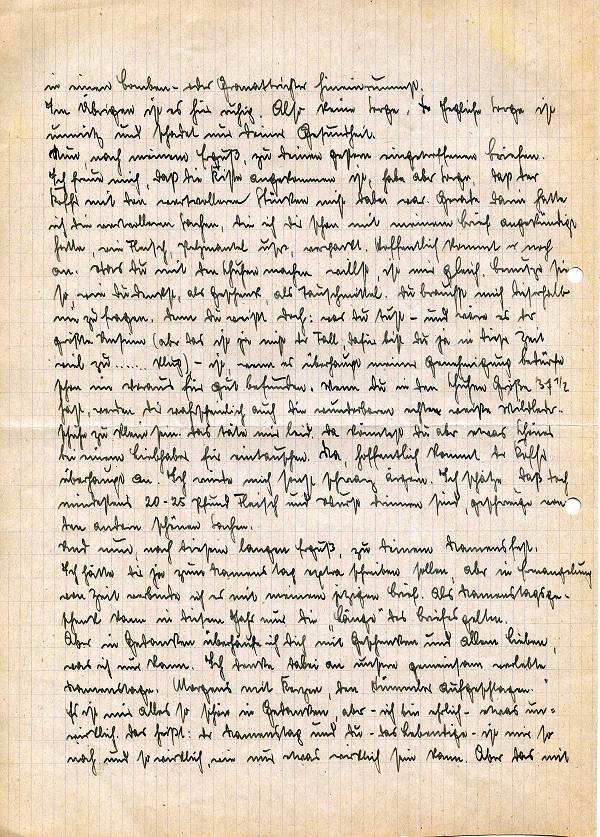 in einen Bomben- oder Granattrichter hineinrummst.
Im Übrigen ist es hier ruhig. Also keine Sorge, Sorge ist
unnütz und schadet nur Deiner Gesundheit.
Nun, nach meinem Erguß, zu Deinen gestern eingetroffenen Briefen.
Ich freue mich, daß die Kiste angekommen ist, habe aber Sorge, daß der
Koffer mit den wertvolleren Stücken nicht dabei war. Gerade darin hatte
ich die wertvolleren Sachen, die ich Dir schon mit meinem Brief angekündigt
hatte, wie Fleisch, Pelzmantel usw. verpackt. Hoffentlich kommt er noch
an. Was Du mit den Schuhen machen willst, ist mir gleich. Benutze sie
so, wie Du denkst, als Geschenk, als Tauschmittel. Du brauchst mich dieserhalb
nie zu fragen. Denn Du weißt doch: was Du tust - und wäre es der
größte Unsinn (aber das ist ja nicht der Fall, dafür bist Du ja in diese Zeit
viel zu ...... klug) - ist, wenn es überhaupt meiner Genehmigung bedürfe
schon im Voraus für gut befunden. Wenn Du in den Schuhen Größe 37 1/2
hast, werden Dir wahrscheinlich auch die wunderbaren echten weißen Wildleder-
schuhe zu klein sein. Das täte mir leid. Da könntest Du aber etwas Schönes
bei einem Liebhaber für eintauschen. Na, hoffentlich kommt der Koffer
überhaupt an. Ich würde mich sonst schwarz ärgern. Ich schätze, daß doch
mindestens 20-25 Pfund Fleisch und Wurst drinnen sind, geschweige von
den andern schönen Sachen.
Und nun, nach diesem langen Erguß, zu Deinem Namensfest.
Ich hätte Dir ja zum Namenstag extra schreiben sollen, aber in Ermangelung
von Zeit verbinde ich es mit meinem jetzigen Brief. Als Namenstagsge-
schenk kann in diesem Jahr nur die "Länge" des Briefes gelten.
Aber in Gedanken überhäufe ich Dich mit Geschenken und allem Lieben,
was ich nur kann. Ich denke dabei an unsere gemeinsam verlebte
Namenstage. Morgens mit Kerzen, den Kümmeler aufgeschlagen."
Es ist mir alles so schön in Gedanken, aber - ich bin ehrlich - etwas un-
wirklich. Das heißt: der Namenstag und Du - das Lebendige - ist mir so
nah und so wirklich, wie nur etwas wirklich sein kann. Aber das mit